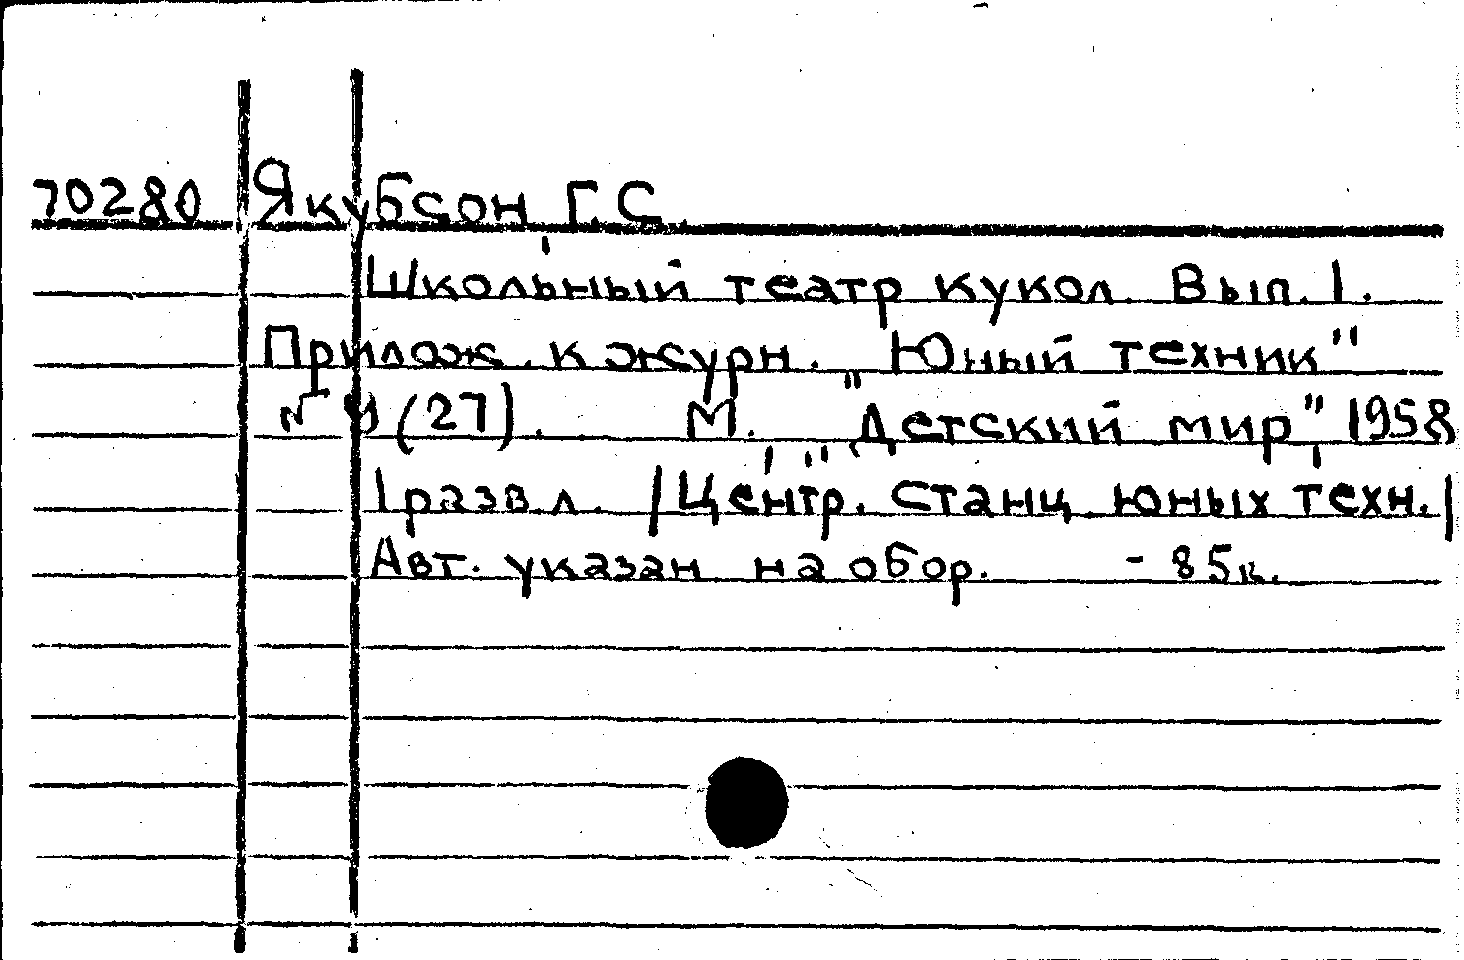 70280 Якубсон Г.С.
Школьный театр кукол. Вып. 1.
Прилож. к журн. „Юный техник"
(27). М., „Детский мир", 1958
1 разв. л. /Центр. станц. юных техн./
Авт. указан на обор. - 85к.